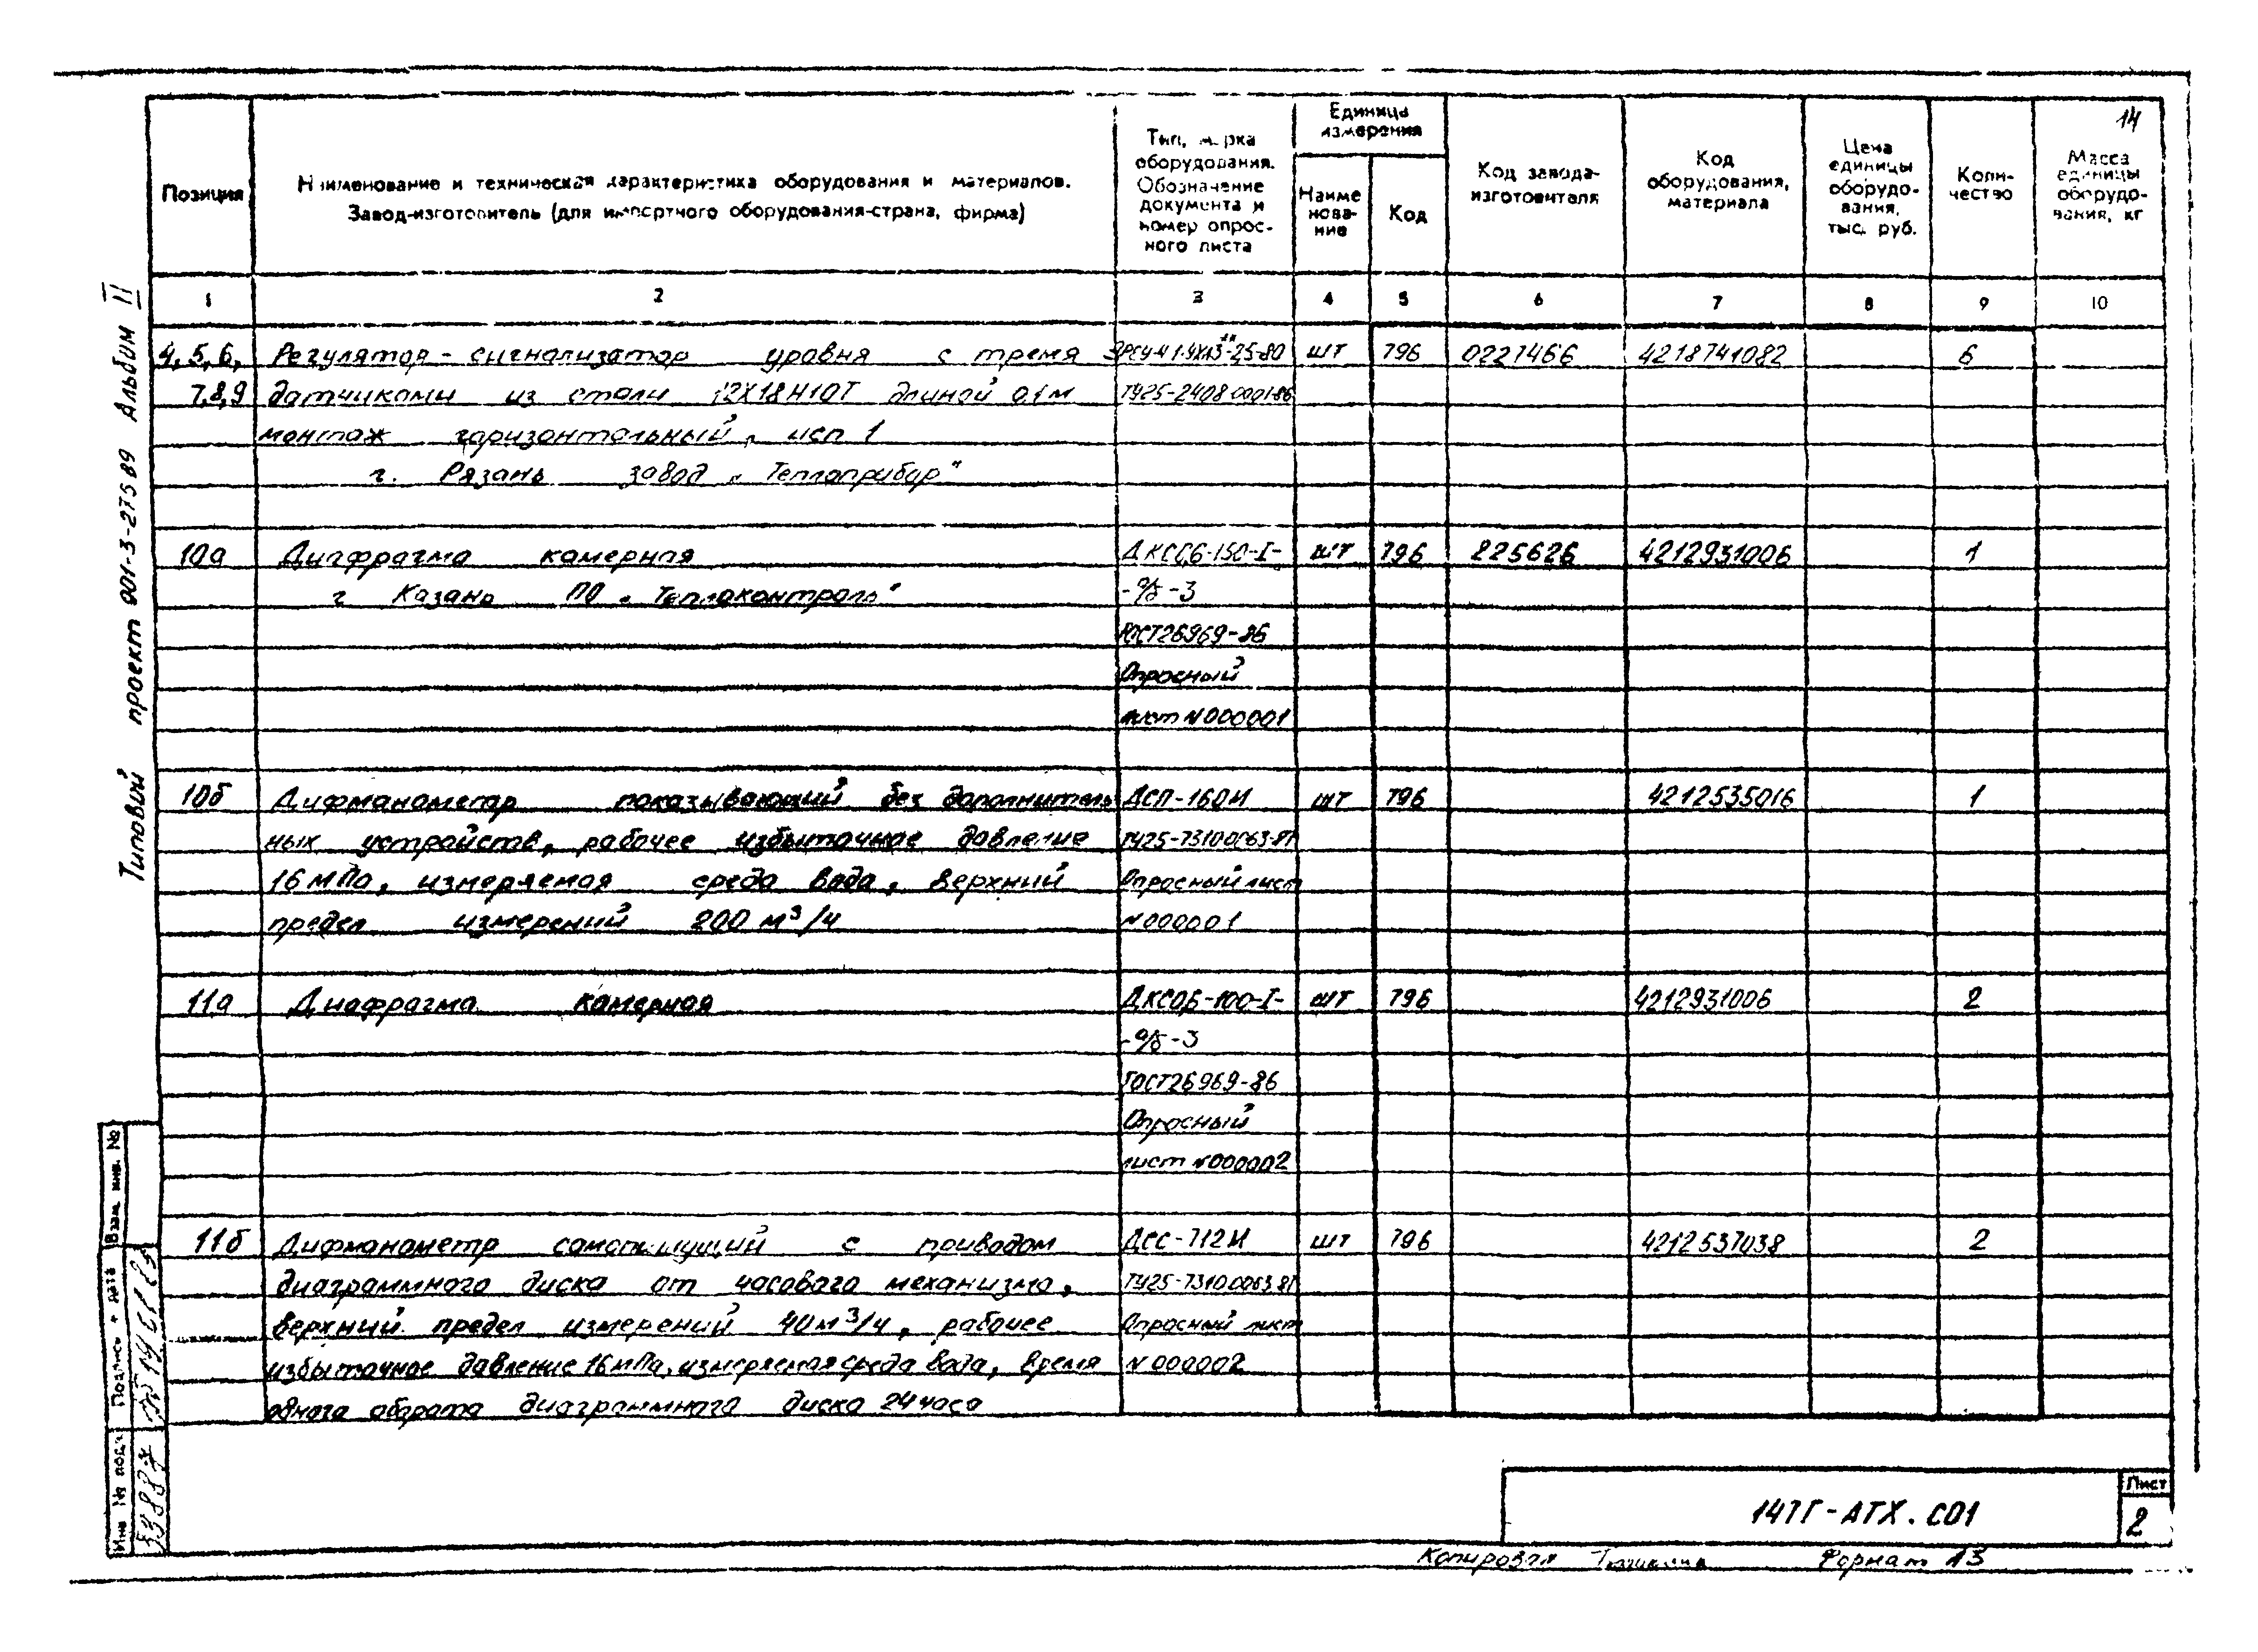 14
Позиция
Наименование и техническая характеристика оборудования и материалов.
Завод-изготовитель (для импортного оборудования-страна, фирма)
Тип, марка
оборудования.
Обозначение
документа и
номер опрос-
ного листа
Единица
измерения
Наиме
нова-
ние
Код
Код завода-
изготовителя
Код
оборудования,
материала
Цена
единицы
оборудо-
вания,
тыс. руб.
Коли-
чество
Масса
единицы
оборудо-
вания, кг
1 2 3 4 5 6 7 8 9 10
4, 5, 6, Регулятор-сигнализатор уровня с тремя шт 796 0227466 4218741082 6
7,8,9 датчиками из стали 12Х18Н10Т длиной 0,1м ТУ25-2408.0001-86
монтаж горизонтальный, исп 1
г. Рязань завод „Теплоприбор"
10а Диафрагма камерная ДКС06-150-I- шт 796 225626 4212931006 1
г Казань ПО „Теплоконтроль" -а/б-3
ГОСТ26969-86
Опросный
лист N000001
10б Дифманометр показывающий без дополнитель ДСП-160М шт 796 4212535016 1
ных устройств, рабочее избыточное давление ТУ25-7310.0063-87
16мПа, измеряемая среда вода, верхний Опросный лист
предел измерений 200 м³/ч N000001
11а Диафрагма камерная ДКС06-100-I- шт 796 4212931006 2
-а/б-3
ГОСТ26969-86
Опросный
лист N000002
11б Дифманометр самопишущий с приводом ДСС-712М шт 796 4212537038 2
диаграммного диска от часового механизма, ТУ25-7310.0063.87
верхний предел измерений 40м³/ч, рабочее Опросный лист
избыточное давление 16мПа, измеряемая среда вода, время N000002
одного оборота диаграммного диска 24 часа
Типовой проект 901-3-275 89 Альбом II
Взам. инв. №
Подпись и дата
Инв № подл
14ТГ-АТХ.С01
Лист
2
Копировал Формат А3